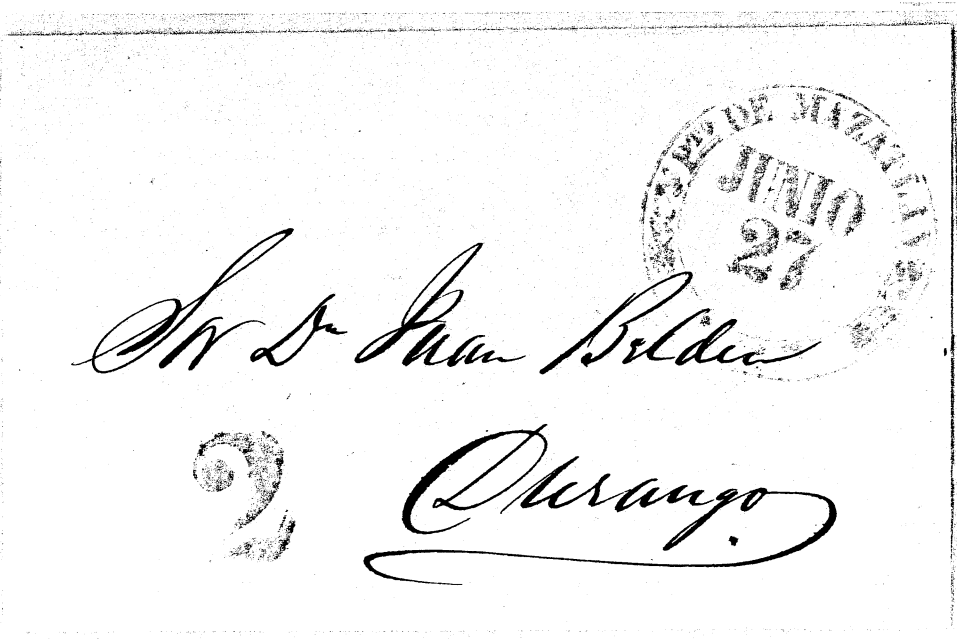 DE MAZATLAN
JUNIO
27
Sor Dn Juan Belden
2
Durango.